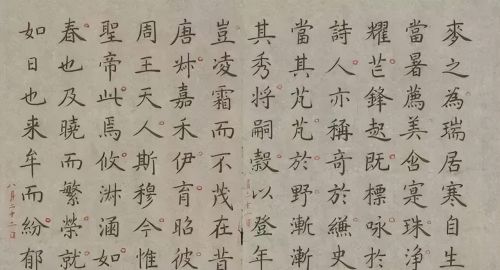 麥之為瑞居寒自生
當暑薦美含寔珠淨
耀芒鋒越既標咏於
詩人亦稱竒於縑史
當其芃芃於野漸漸
其秀将嗣穀以登年
豈凌霜而不茂在昔
唐叔嘉禾伊育昭彼
周王天人斯穆今惟
聖帝此焉攸淑涵如
春也及曉而繁榮就
如日也来牟而紛郁
八月二十二日